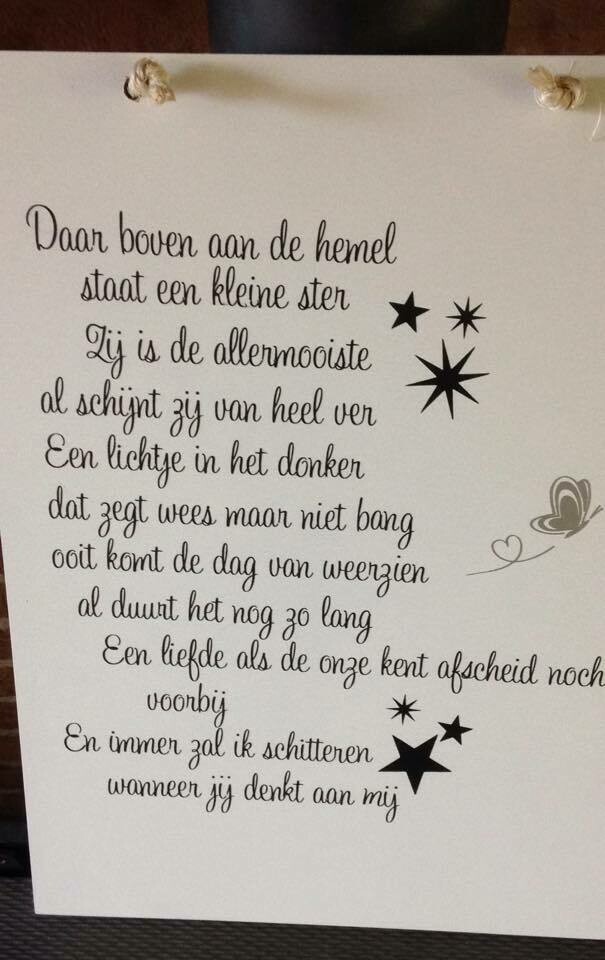 Daar boven aan de hemel
staat een kleine ster
Zij is de allermooiste
al schijnt zij van heel ver
Een lichtje in het donker
dat zegt wees maar niet bang
ooit komt de dag van weerzien
al duurt het nog zo lang
Een liefde als de onze kent afscheid noch
voorbij
En immer zal ik schitteren
wanneer jij denkt aan mij